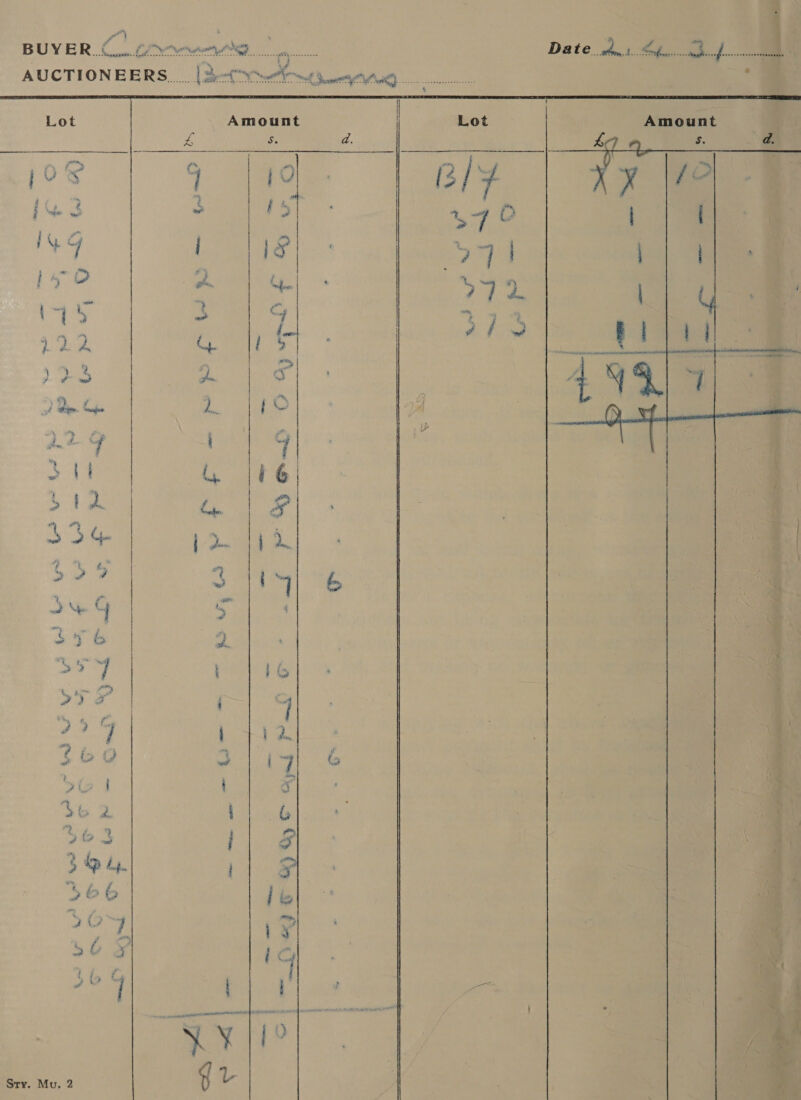 BUYER Cumming Date 2. 4. 34
AUCTIONEERS
Lot Amount
£ s. d.
108 9 10 .
143 3 15 .
149 1 18 .
150 2 4 .
195 3 9
222 4 15 .
223 2 8 .
224 2 10
229 1 9
311 4 16
312 4 8 .
334 12 12 .
335 3 17 6
349 5 .
356 2 .
357 1 16 .
358 1 9 .
359 1 12
360 3 17 6
361 1 8 .
362 1 6 .
363 1 8
364 1 8 .
366 16 .
367 18 .
368 19 .
369 1 1 .
10
82
Sty. Mu. 2
Lot Amount
£ s. d.
B/F 10
370 1 1
371 1 1 .
372 1 4 .
373 11
7